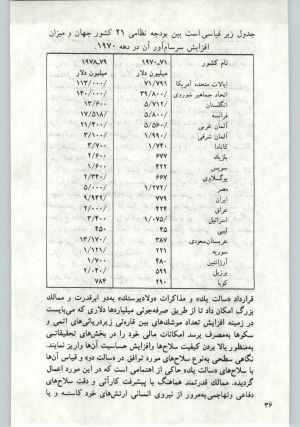 جدول زیر قیاسی است بین بودجه نظامی ۲۱ کشور جهان و میزان
افزایش سرسام‌آور آن در دهه ۱۹۷۰.
نام کشور ۱۹۷۰ـ۷۱ ۱۹۷۸ـ۷۹
میلیون دلار میلیون دلار
ایالات متحده آمریکا ۷۱/۷۹۱ ۱۱۳/۰۰۰
اتحاد جماهیر شوروی ۳۹/۸۰۰ ۱۴۰/۰۰۰
انگلستان ۵/۷۱۲ ۱۳/۶۰۰
فرانسه ۵/۸۰۰ ۱۷/۵۱۸
آلمان غربی ۵/۵۶۰ ۲۱/۴۰۰
آلمان شرقی ۱/۹۹۰ ۳/۱۰۰
کانادا ۱/۷۴۰ ۳/۷۰۰
بلژیک ۶۷۷ ۲/۶۰۰
سویس ۴۲۲ ۱/۶۰۰
یوگسلاوی ۶۶۷ ۲/۳۴۰
مصر ۱/۲۷۲ ۵/۰۰۰
ایران ۷۷۹
عراق ۴۲۹ ۲/۰۰۰
اسرائیل ۱/۰۷۵ ۳/۴۰۰
لیبی ۴۵ ۴۵۰
عربستان‌سعودی ۳۸۷ ۱۳/۱۷۰
سوریه ۲۲۱ ۱/۱۲۱
آرژانتین ۴۸۰ ۱/۷۰۰
برزیل ۵۹۹ ۲/۰۴۰
کوبا ۲۹۰ ۷۸۴
قرارداد «سالت یك» و مذاکرات «ولادیوستك» به‌دو ابرقدرت و ممالك
بزرگ امکان داد تا از طریق صرفه‌جوئی میلیاردها دلاری که می‌بایست
در زمینه افزایش تعداد موشك‌های بین قاره‌ئی زیردریائی‌های اتمی و
سکوها به‌مصرف برسد امکانات مالی خود را در بخش‌های تحقیقاتی
به‌منظور بالا بردن کیفیت سلاح‌ها وافزایش حساسیت آن‌ها واریز نمایند.
نگاهی سطحی به‌نوع سلاح‌های مورد توافق در «سالت دو» و قیاس آن‌ها
با سلاح‌های «سالت یك» حاکی از اهمیتی است که در این مورد اعمال
گردیده. ممالک قدرتمند هماهنگ با پیشرفت کارآئی و دقت سلاح‌های
دفاعی وتهاجمی به‌مرور از نیروی انسانی ارتش‌های خود کاسته و یا
۳۶